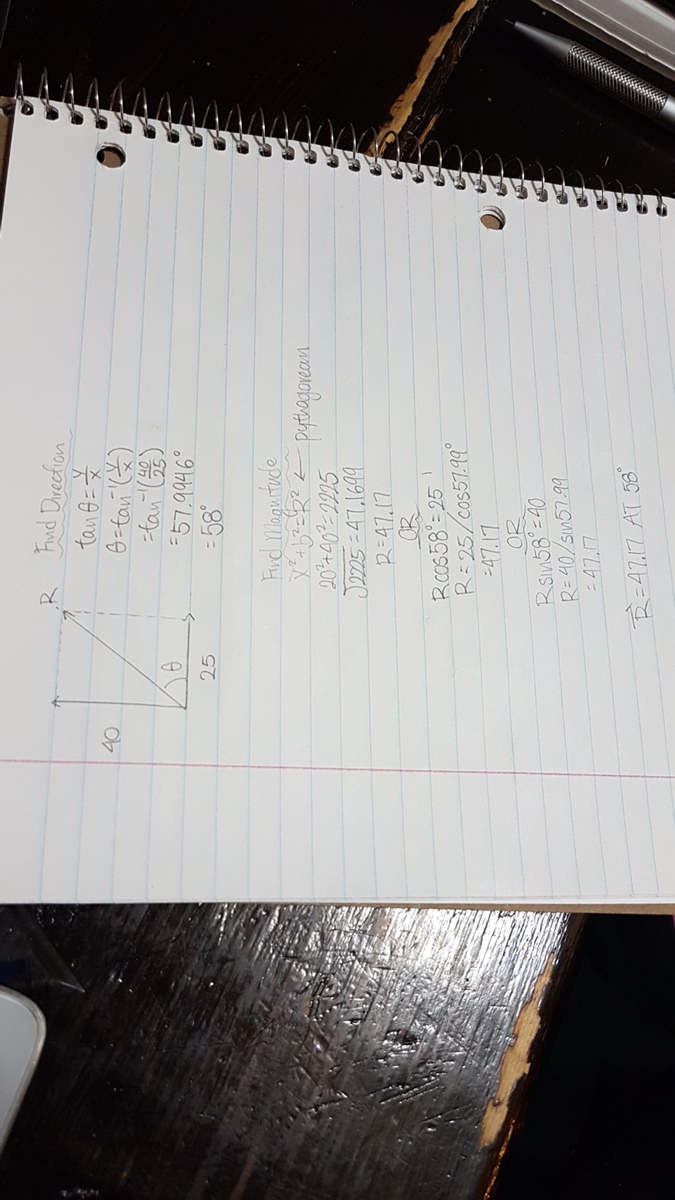 R
40
θ
25
Find Direction
tan θ = y/x
θ = tan⁻¹(y/x)
= tan⁻¹(40/25)
= 57.9946°
= 58°
Find Magnitude
x² + y² = R² ← pythagorean
20² + 40² = 2225
√2225 = 47.1699
R = 47.17
OR
R cos 58° = 25
R = 25/cos 57.99°
= 47.17
OR
R sin 58° = 40
R = 40/sin 57.99
= 47.17
R⃗ = 47.17 AT 58°